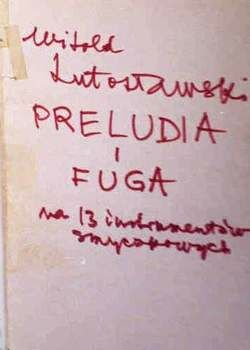 Witold
Lutosławski
PRELUDIA
i
FUGA
na 13 instrumentów
smyczkowych